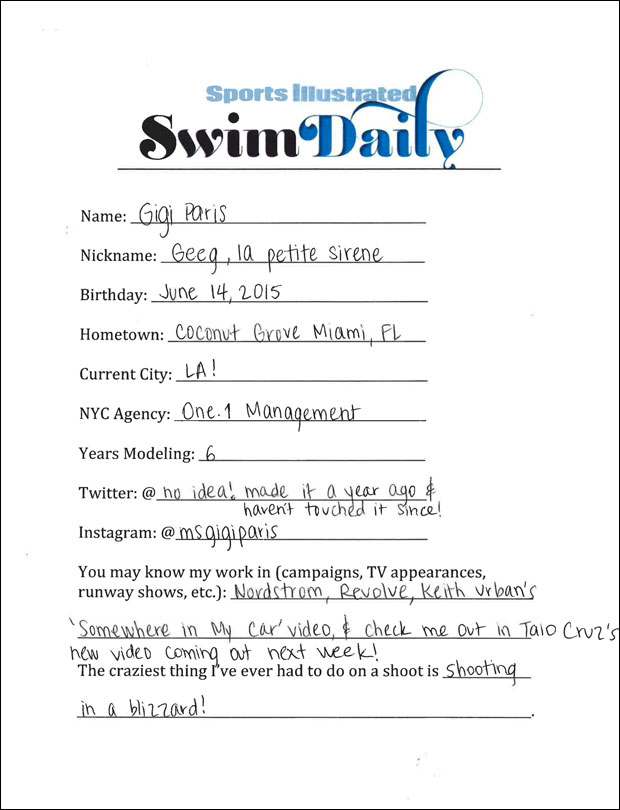 Sports Illustrated
Swim Daily
Name: Gigi Paris
Nickname: Geeg, la petite sirene
Birthday: June 14, 2015
Hometown: Coconut Grove Miami, FL
Current City: LA!
NYC Agency: One.1 Management
Years Modeling: 6
Twitter: @ no idea! made it a year ago &
haven't touched it since!
Instagram: @ msgigiparis
You may know my work in (campaigns, TV appearances,
runway shows, etc.): Nordstrom, Revolve, Keith Urban's
'Somewhere in My Car' video, & check me out in Taio Cruz's
new video coming out next week!
The craziest thing I've ever had to do on a shoot is shooting
in a blizzard!.